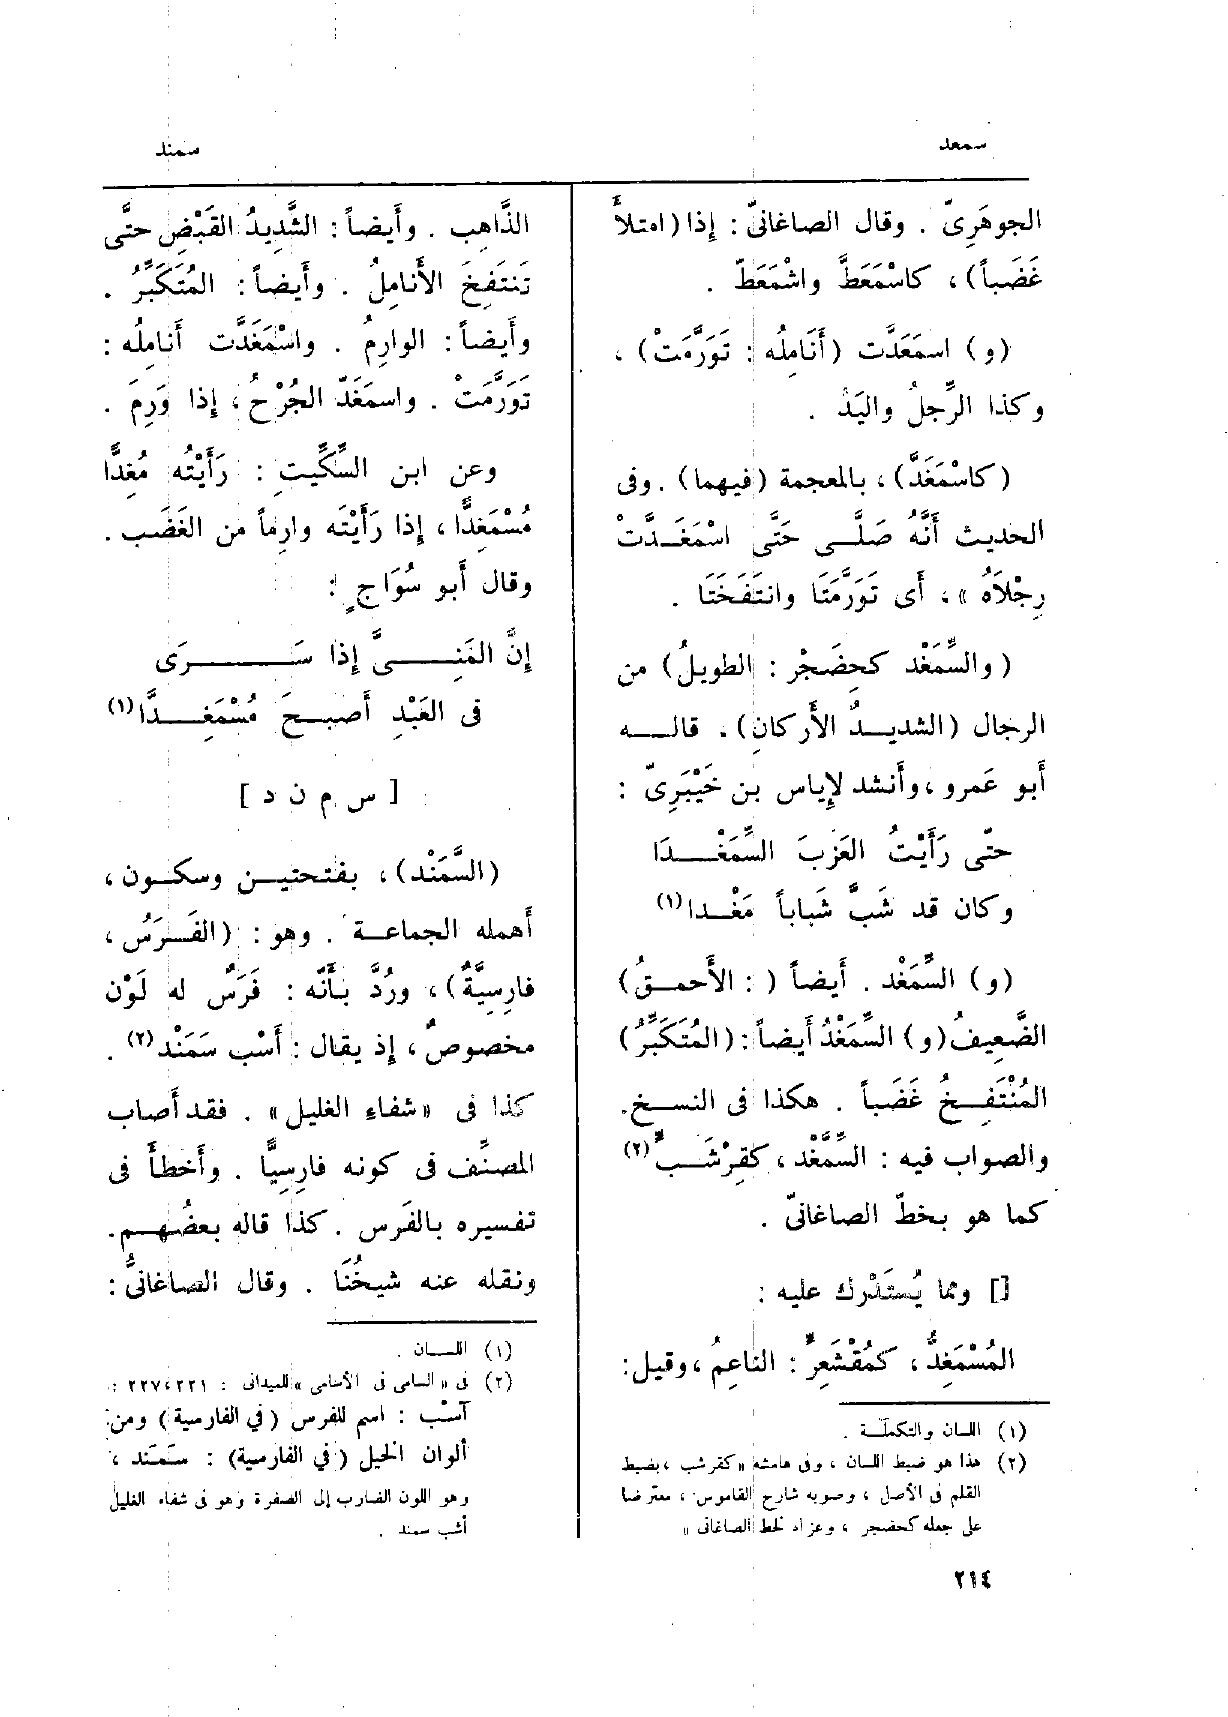 سمعد
سمند
الجوهَرِىّ . وقال الصاغانىّ : إذا (امتلأَ
غَضَباً) ، كاسْمَعَطَّ واشْمَعَطّ .
(و) اسمَعَدَّت (أَنَامِلُه : تَوَرَّمَتْ) ،
وكذا الرِّجلُ واليَدُ .
(كاسْمَغَدَّ) ، بالمعجمة (فيهما) . وفى
الحديث أَنَّهُ صَلَّى حَتَّى اسْمَغَدَّتْ
رِجْلَاهُ » ، أَى تَوَرَّمَتَا وانتَفَخَتَا .
(والسِّمَّغْد كحِضَجْر : الطويلُ) من
الرجال (الشديدُ الأَركانِ) . قاله
أَبو عَمرو ، وأَنشد لإِياس بن خَيْبَرِىّ :
حتّى رَأَيْتُ العَزَبَ السِّمَّغْدَا
وكان قد شَبَّ شَبَاباً مَغْدا(١)
(و) السِّمَّغْد . أَيضاً ( : الأَحمقُ)
الضَّعِيفُ (و) السِّمَّغْدُ أَيضاً : (المُتَكَبِّرُ)
المُنْتَفِخُ غَضَباً . هكذا فى النسخ.
والصواب فيه : السِّمَّغْد ، كقِرْشَبّ(٢)
كما هو بخطّ الصاغانىّ .
[] ومما يُستَدْرك عليه :
المُسْمَغِدُّ ، كمُقْشَعِرّ : الناعِمُ ، وقيل :
(١) اللسان والتكملة .
(٢) هذا هو ضبط اللسان ، وفى هامشه « كقرشب ، بضبط
القلم فى الأصل ، وصوبه شارح القاموس ، معترضا
على جعله كحضجر ، وعزاه لخط الصاغانى »
الذَّاهِب . وأَيضاً : الشَّدِيدُ القَبْضِ حتَّى
تَنتَفِخَ الأَنامِلُ . وأَيضاً : المُتَكَبِّرُ .
وأَيضاً : الوارِمُ . واسْمَغَدَّت أَنامِلُه :
تَوَرَّمَتْ . واسمَغَدّ الجُرْحُ ، إِذا وَرِمَ .
وعن ابن السِّكِّيتِ : رَأَيْتُه مُغِدًّا
مُسْمَغِدًّا ، إِذا رَأَيْتَه وارِماً من الغَضَب .
وقال أَبو سُوَاجٍ :
إِنَّ المَنِىَّ إِذا سَرَى
فى العَبْدِ أَصبحَ مُسْمَغِدًّا(١)
[ س م ن د ]
(السَّمَنْد) ، بفتحتين وسكون ،
أَهمله الجماعة . وهو : (الفَرَسُ ،
فارِسِيَّةٌ) ، ورُدَّ بأَنّه : فَرَسٌ له لَوْن
مخصوصٌ ، إِذ يقال : أَسْب سَمَنْد(٢) .
كذا فى « شفاءِ الغليل » . فقد أَصاب
المصنِّف فى كونه فارِسِيًّا . وأَخطأَ فى
تفسيره بالفَرس . كذا قاله بعضُهم.
ونقله عنه شيخُنَا . وقال الصاغانىُّ :
(١) اللسان .
(٢) فى « السامى فى الأسامى » للميدانى : ٢٢٧،٢٢١ :
آسْب : اسم للفرس (في الفارسية) ومن
ألوان الخيل (في الفارسية) : سَمَند ،
وهو اللون الضارب إلى الصفرة وهو فى شفاء الغليل
أشب سمند .
٢١٤